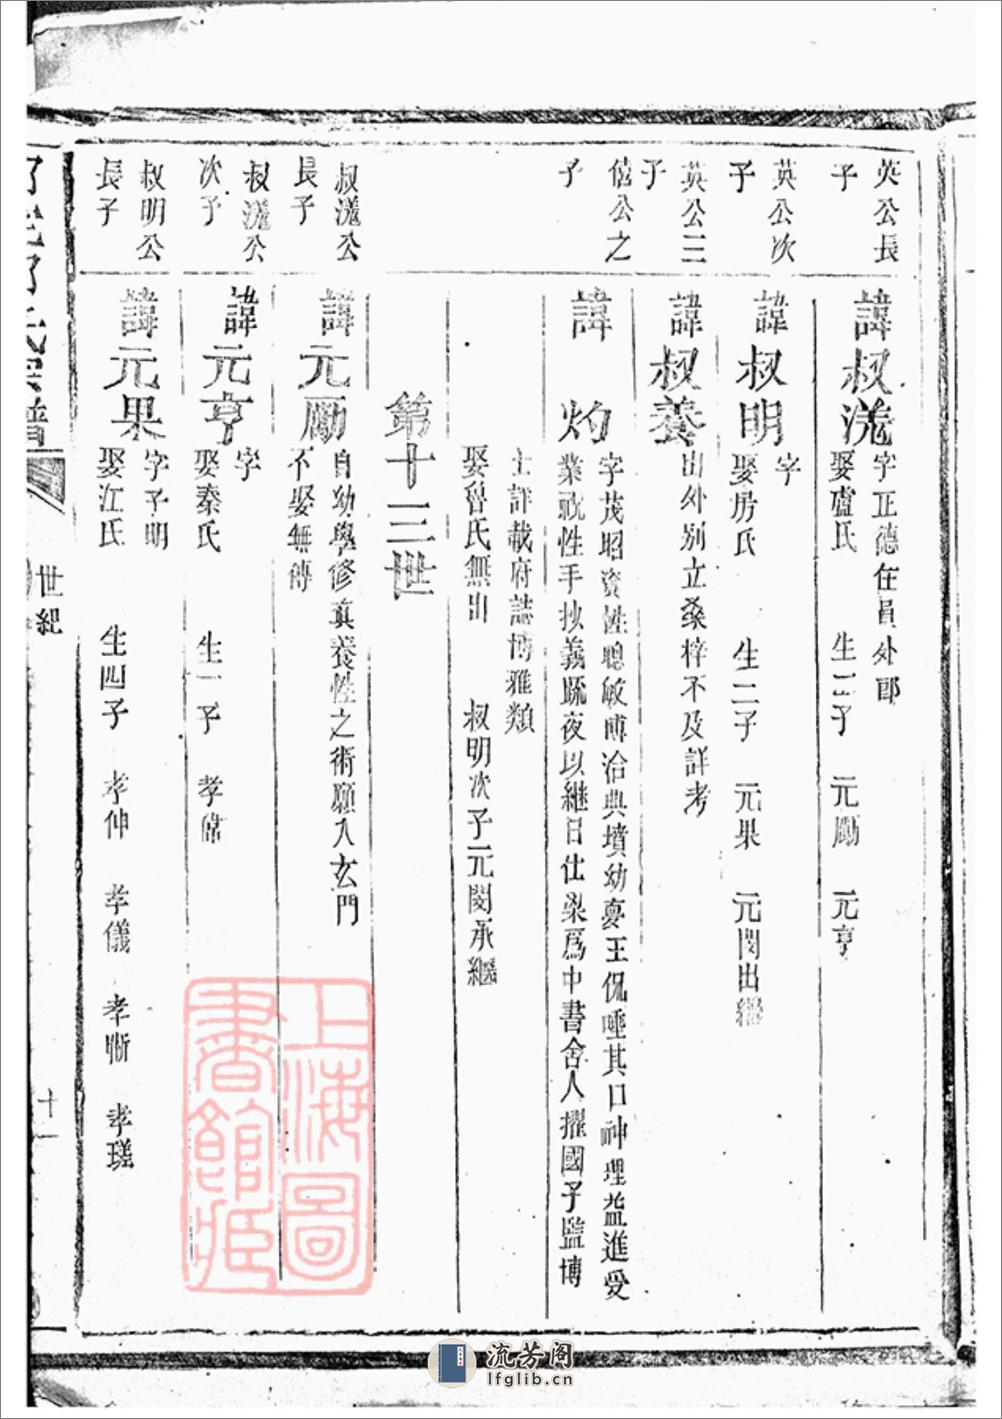 英公長
子
諱叔滰
字正德任員外郎
娶盧氏 生二子 元勵 元亨
英公次
子
諱叔明
字
娶房氏 生二子 元果 元閔出繼
英公三
子
諱叔養
出外别立桑梓不及詳考
僖公之
子
諱 灼
字茂昭資性聰敏博洽典墳幼夢王侃唾其口神理益進受
業祝性手抄義疏夜以継日仕梁爲中書舍人擢國子監博
士詳載府誌博雅類
娶曾氏無出 叔明次子元閔承繼
第十三世
叔滰公
長子
諱元勵
自幼學修真養性之術願入玄門
不娶無傳
叔滰公
次子
諱元亨
字
娶秦氏 生一子 孝
叔明公
長子
諱元果
字子明
娶江氏 生四子 孝伸 孝儀 孝慚 孝瑳
氏宗譜
世紀
十一
上海圖
書館藏
流芳阁
lfglib.cn